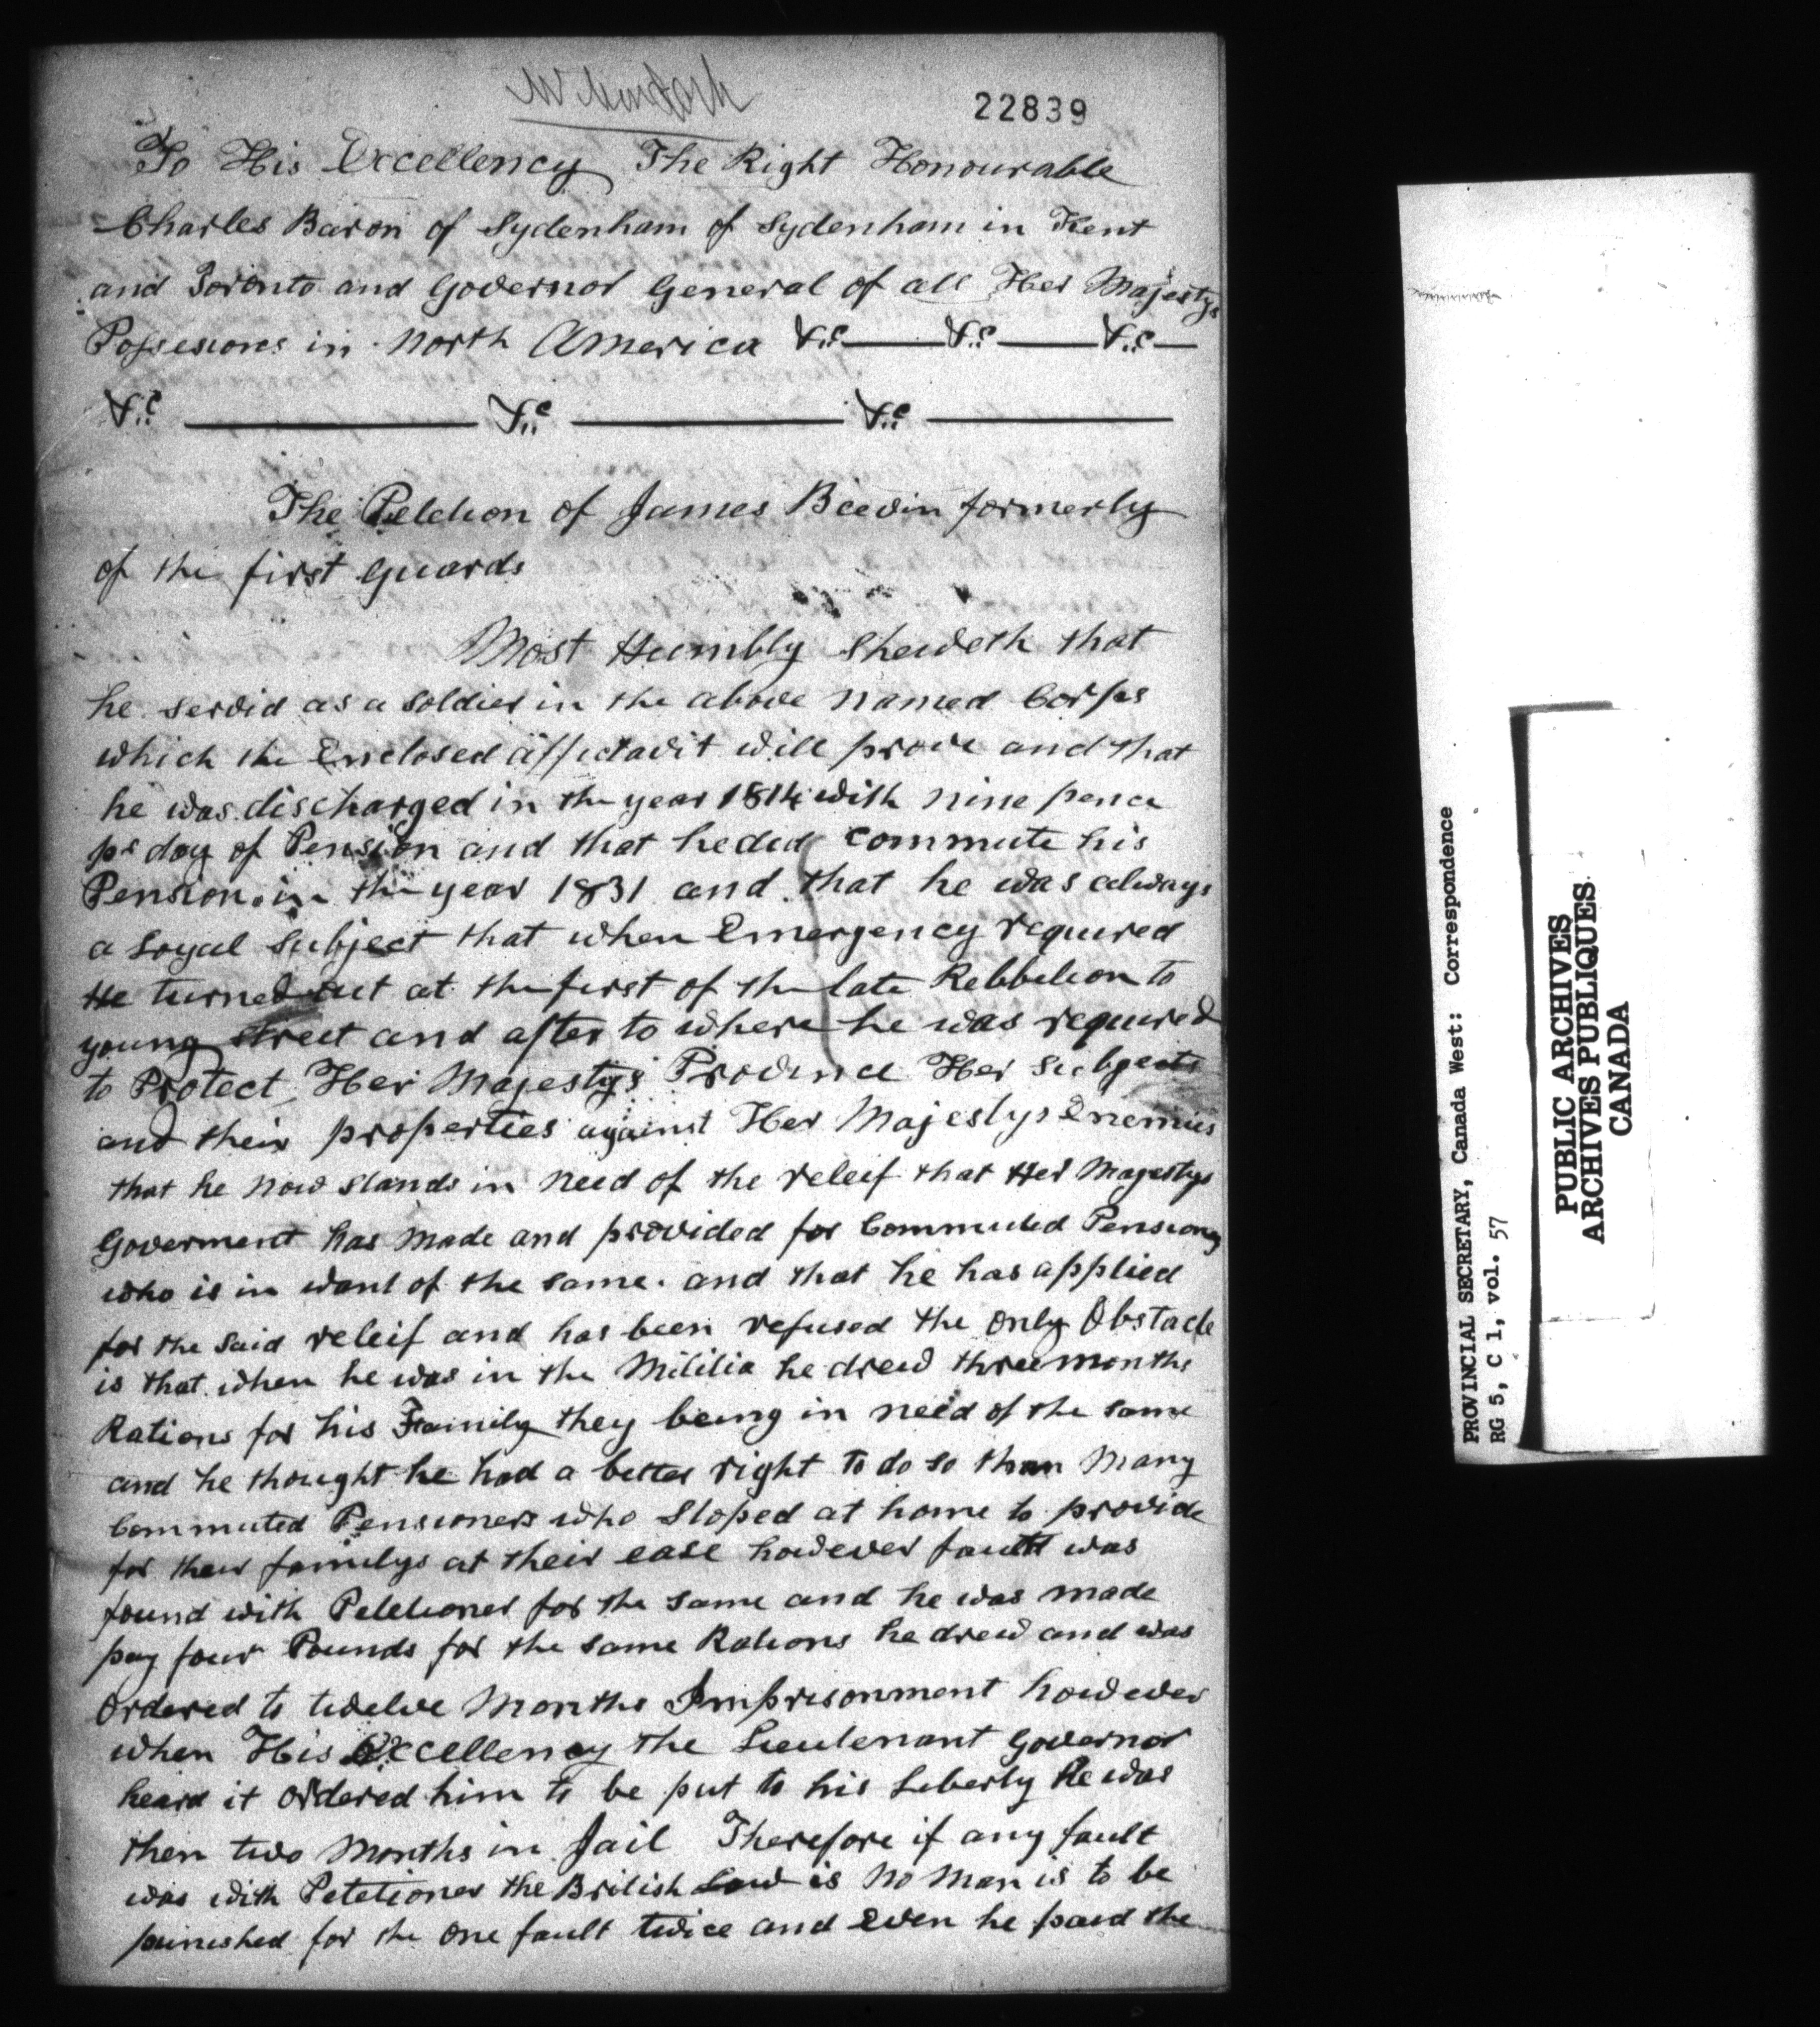 22839
To His Excellency The Right Honourable
Charles Baron of Sydenham of Sydenham in Kent
and Toronto and Governor General of all Her Majestys
Possesions in North America &c — &c — &c —
&c — &c — &c —
The Petetion of James Beevin formerly
of the first Guards
Most Humbly Sheweth that
he servid as a soldier in the above named Corps
which the Enclosed affidavit will prove and that
he was discharged in the year 1814 with nine pence
pr day of Pension and that he did commute his
Pension in the year 1831 and that he was always
a Loyal Subject that when Emergency required
He turned out at the first of the late Rebbelion to
young street and after to where he was required
to Protect Her Majestys Province Her Subjects
and their properties against Her Majestys Enemies
that he now stands in need of the releif that Her Majestys
Goverment has made and provided for Commuted Pensioners
who is in want of the same. and that he has applied
for the said releif and has been refused the only Obstacle
is that when he was in the Militia he drew three months
Rations for his Family they being in need of the same
and he thought he had a better right to do so than Many
Commuted Pensioners who stoped at home to provide
for their familys at their ease however fault was
found with Petetioner for the same and he was made
pay four Pounds for the same Rations he drew and was
Ordered to twelve Months Imprisonment however
when His Excellency the Lieutenant Governor
heard it ordered him to be put to his Liberty He was
then two Months in Jail Therefore if any fault
was with Petetioner the British Law is No Man is to be
punished for the One fault twice and Even he paid the
PROVINCIAL SECRETARY, Canada West: Correspondence
RG 5, C 1, vol. 57
PUBLIC ARCHIVES
ARCHIVES PUBLIQUES
CANADA